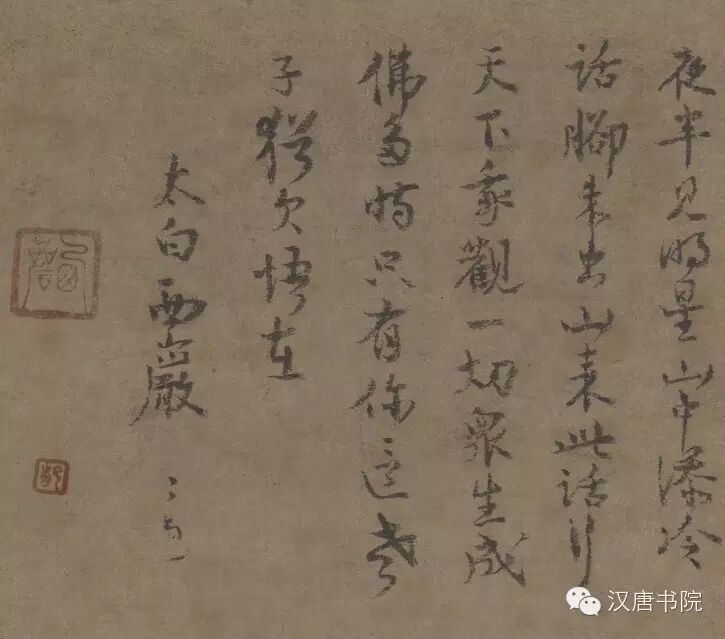 夜半見明星山中添冷
話腳未出山來此話行
天下我觀一切衆生成
佛多時只有你這老
子猶欠悟在
太白西巖
汉唐书院